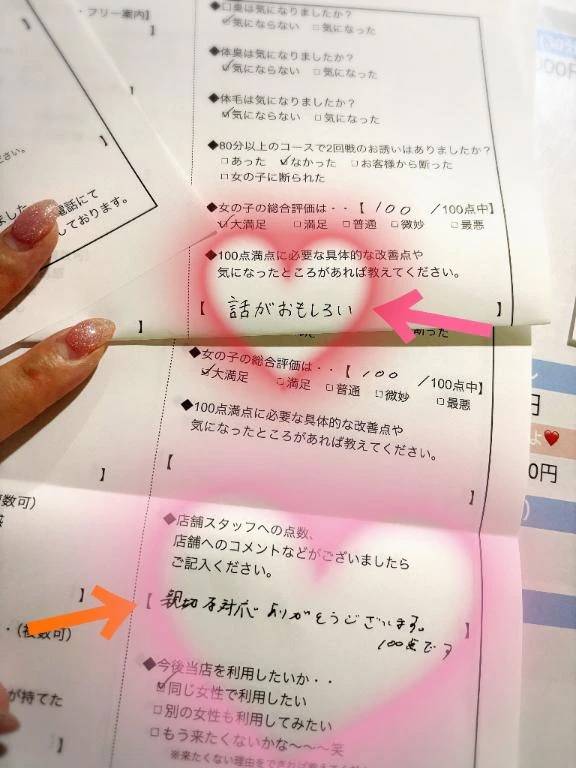 ・フリー案内】
ださい。
】
電話にて
しております。
】
◆口臭は気になりましたか？
☑気にならない □気になった
◆体臭は気になりましたか？
☑気にならない □気になった
◆体毛は気になりましたか？
☑気にならない □気になった
◆80分以上のコースで2回戦のお誘いはありましたか？
□あった ☑なかった □お客様から断った
□女の子に断られた
◆女の子の総合評価は・・【 100 /100点中】
☑大満足 □満足 □普通 □微妙 □最悪
◆100点満点に必要な具体的な改善点や
気になったところがあれば教えてください。
【 話がおもしろい 】
◆女の子の総合評価は・・【 100 /100点中】
☑大満足 □満足 □普通 □微妙 □最悪
◆100点満点に必要な具体的な改善点や
気になったところがあれば教えてください。
【 】
◆店舗スタッフへの点数、
店舗へのコメントなどがございましたら
ご記入ください。
【 親切な対応ありがとうございます。
100点です 】
◆今後当店を利用したいか・・
☑同じ女性で利用したい
□別の女性も利用してみたい
□もう来たくないかな〜〜〜笑
複数可）
】
・（複数可）
が持てた
】
0円